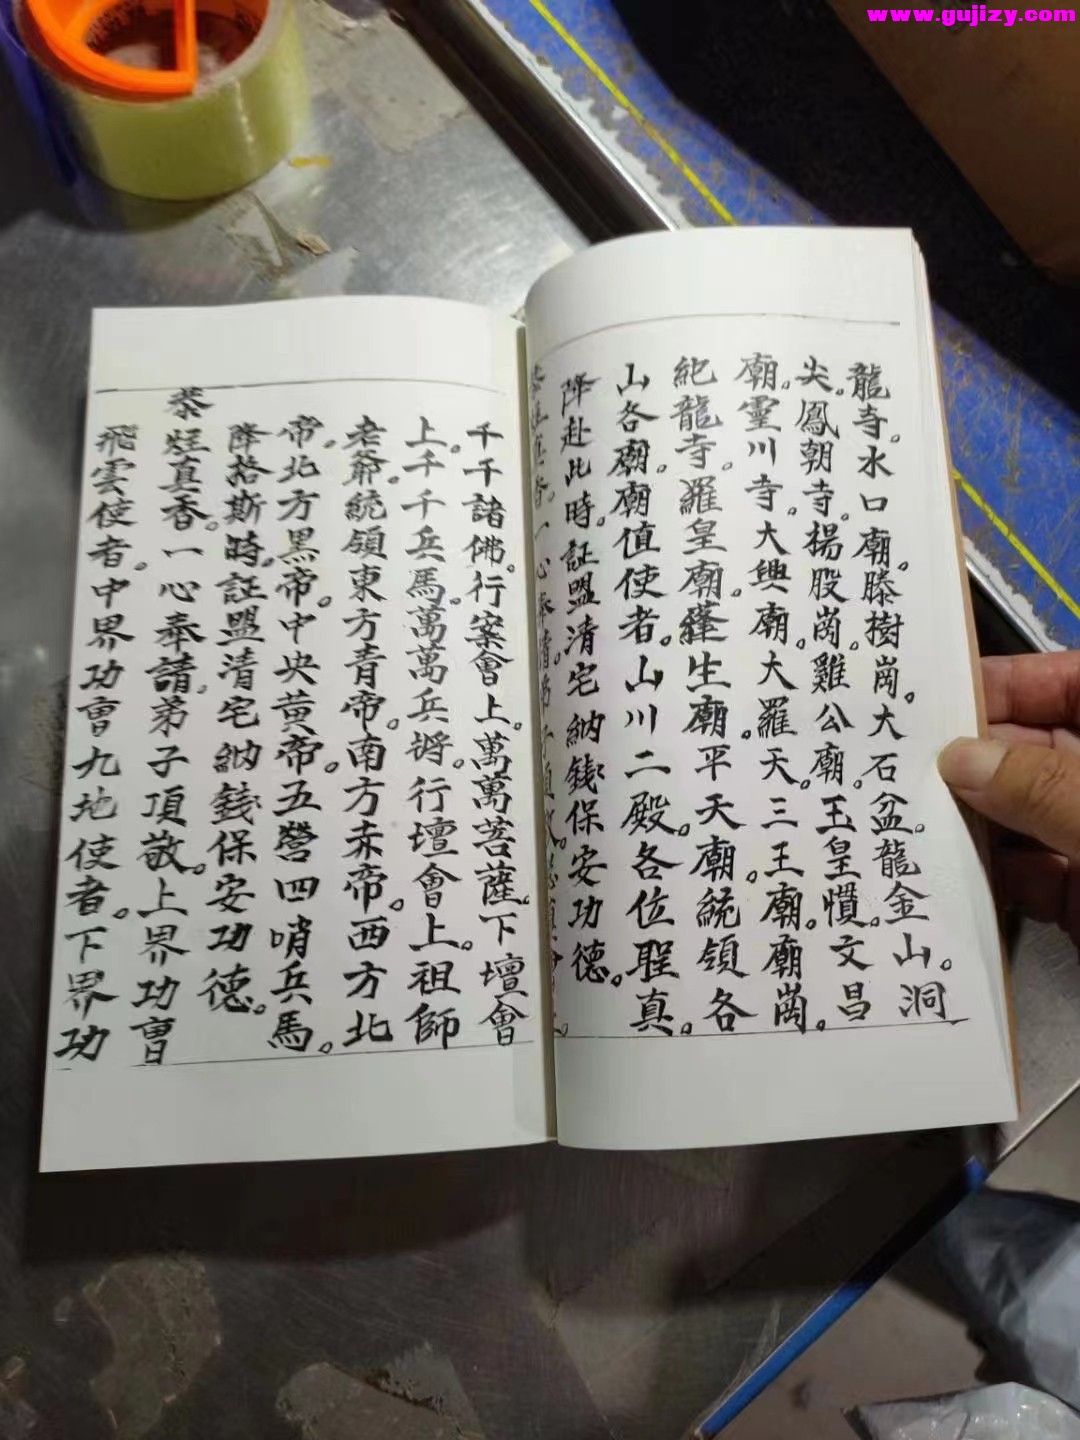 www.gujizy.com
龍寺。水口廟。滕樹崗。大石盆。龍金山。洞
尖。鳳朝寺。揚股崗。雞公廟。玉皇慣。文昌
廟。靈川寺。大興廟。大羅天。三王廟。廟崗。
紀龍寺。羅皇廟。蓬生廟。平天廟。統領各
山各廟。廟值使者。山川二殿。各位聖真。
降赴此時。証盟清宅納錢保安功德。
一心奉請弟子頂
千千諸佛。行案會上。萬萬菩薩。下壇會
上。千千兵馬。萬萬兵將。行壇會上。祖師
老爺。統領東方青帝。南方赤帝。西方北
帝。北方黑帝。中央黃帝。五營四哨兵馬。
降格斯時。証盟清宅納錢保安功德。
恭
焚真香。一心奉請。弟子頂敬。上界功曹
飛雲使者。中界功曹九地使者。下界功